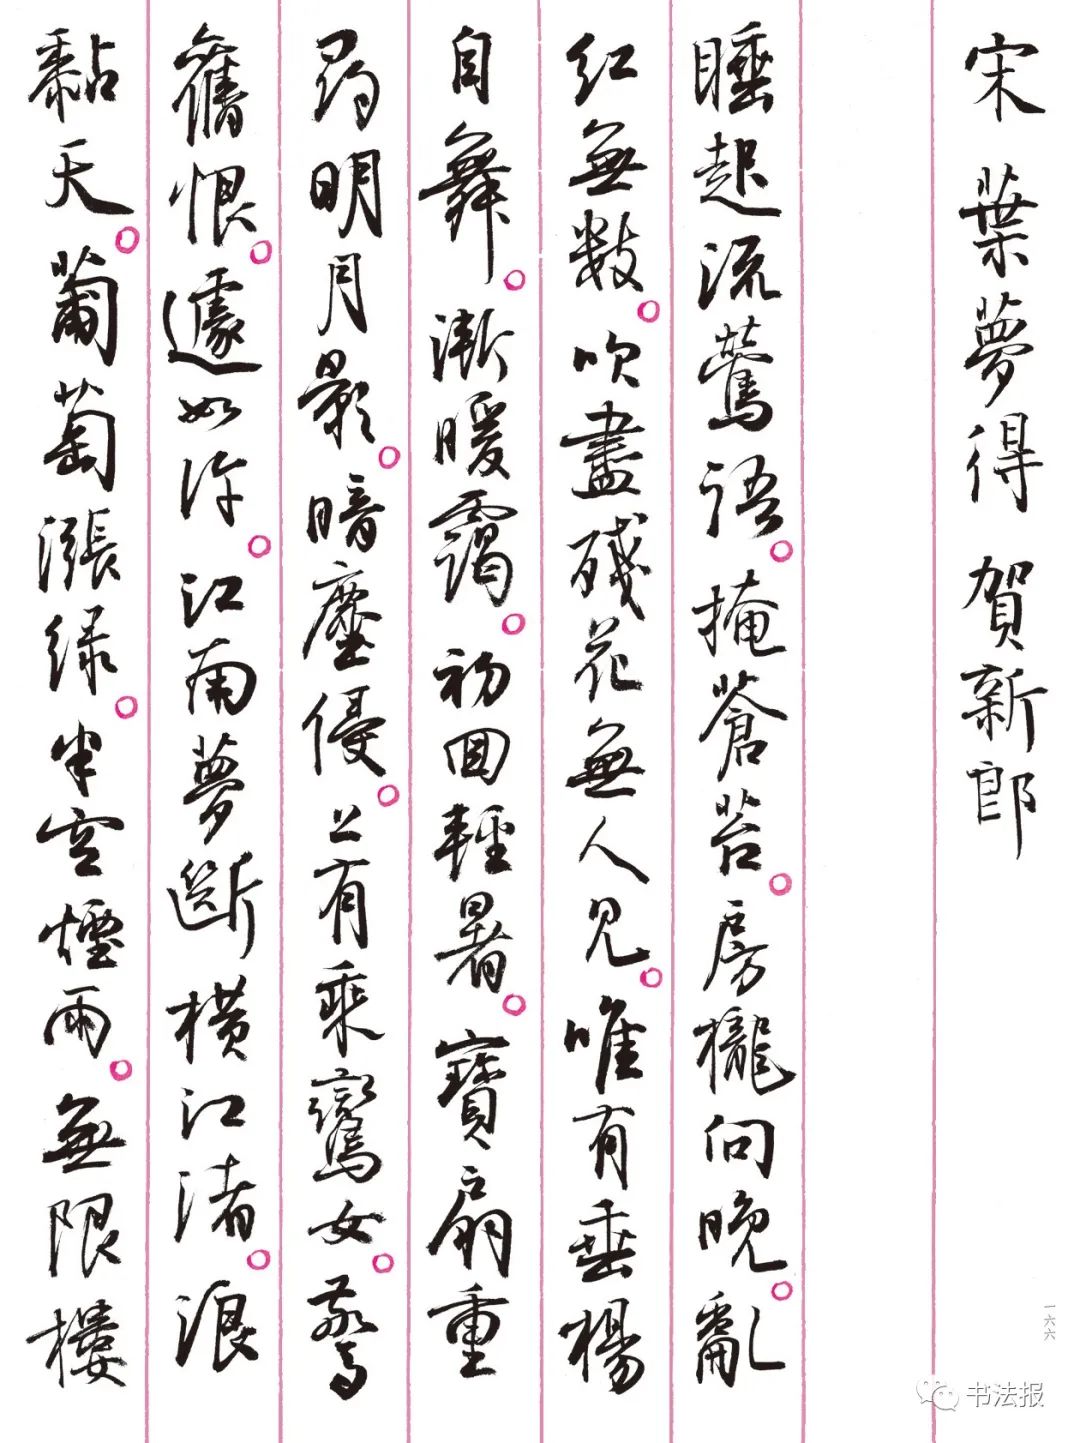 宋 葉夢得 賀新郎
睡起流鶯語。掩蒼苔。房櫳向晚。亂
紅無數。吹盡殘花無人見。唯有垂楊
自舞。漸暖靄。初回輕暑。寶扇重
尋明月影。暗塵侵。上有乘鸞女。驚
舊恨。遽如許。江南夢斷橫江渚。浪
黏天。葡萄漲綠。半空煙雨。無限樓
一六六
书法报